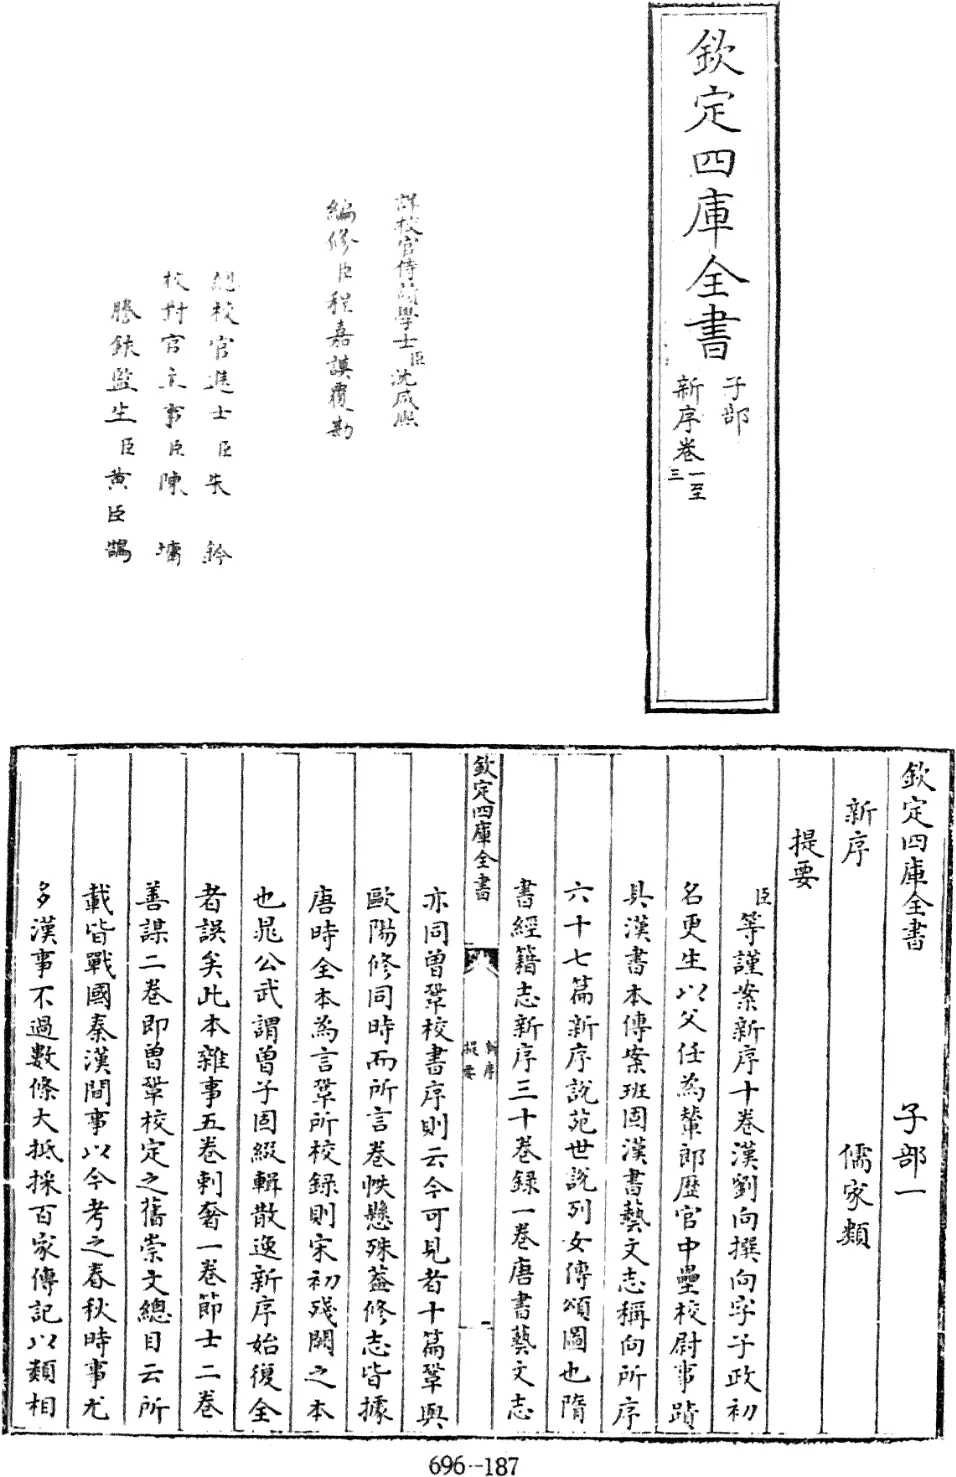 欽定四庫全書
子部
新序卷一至三
詳校官侍讀學士臣沈咸熙
編修臣程嘉謨覆勘
總校官進士臣朱鈐
校對官主事臣陳墉
謄錄監生臣黃臣鵠
欽定四庫全書 子部一
新序 儒家類
提要
臣等謹案新序十卷漢劉向撰向字子政初
名更生以父任為輦郎歴官中壘校尉事蹟
具漢書本傳案班固漢書藝文志稱向所序
六十七篇新序說苑世說列女傳頌圖也隋
書經籍志新序三十卷錄一卷唐書藝文志
欽定四庫全書
新序
提要
一
亦同曾鞏校書序則云今可見者十篇鞏與
歐陽修同時而所言卷帙懸殊葢修志皆據
唐時全本為言鞏所校錄則宋初殘闕之本
也晁公武謂曾子固綴輯散逸新序始復全
者誤矣此本雜事五卷刺奢一卷節士二卷
善謀二卷即曾鞏校定之舊崇文總目云所
載皆戰國秦漢間事以今考之春秋時事尤
多漢事不過數條大抵採百家傳記以類相
696--187